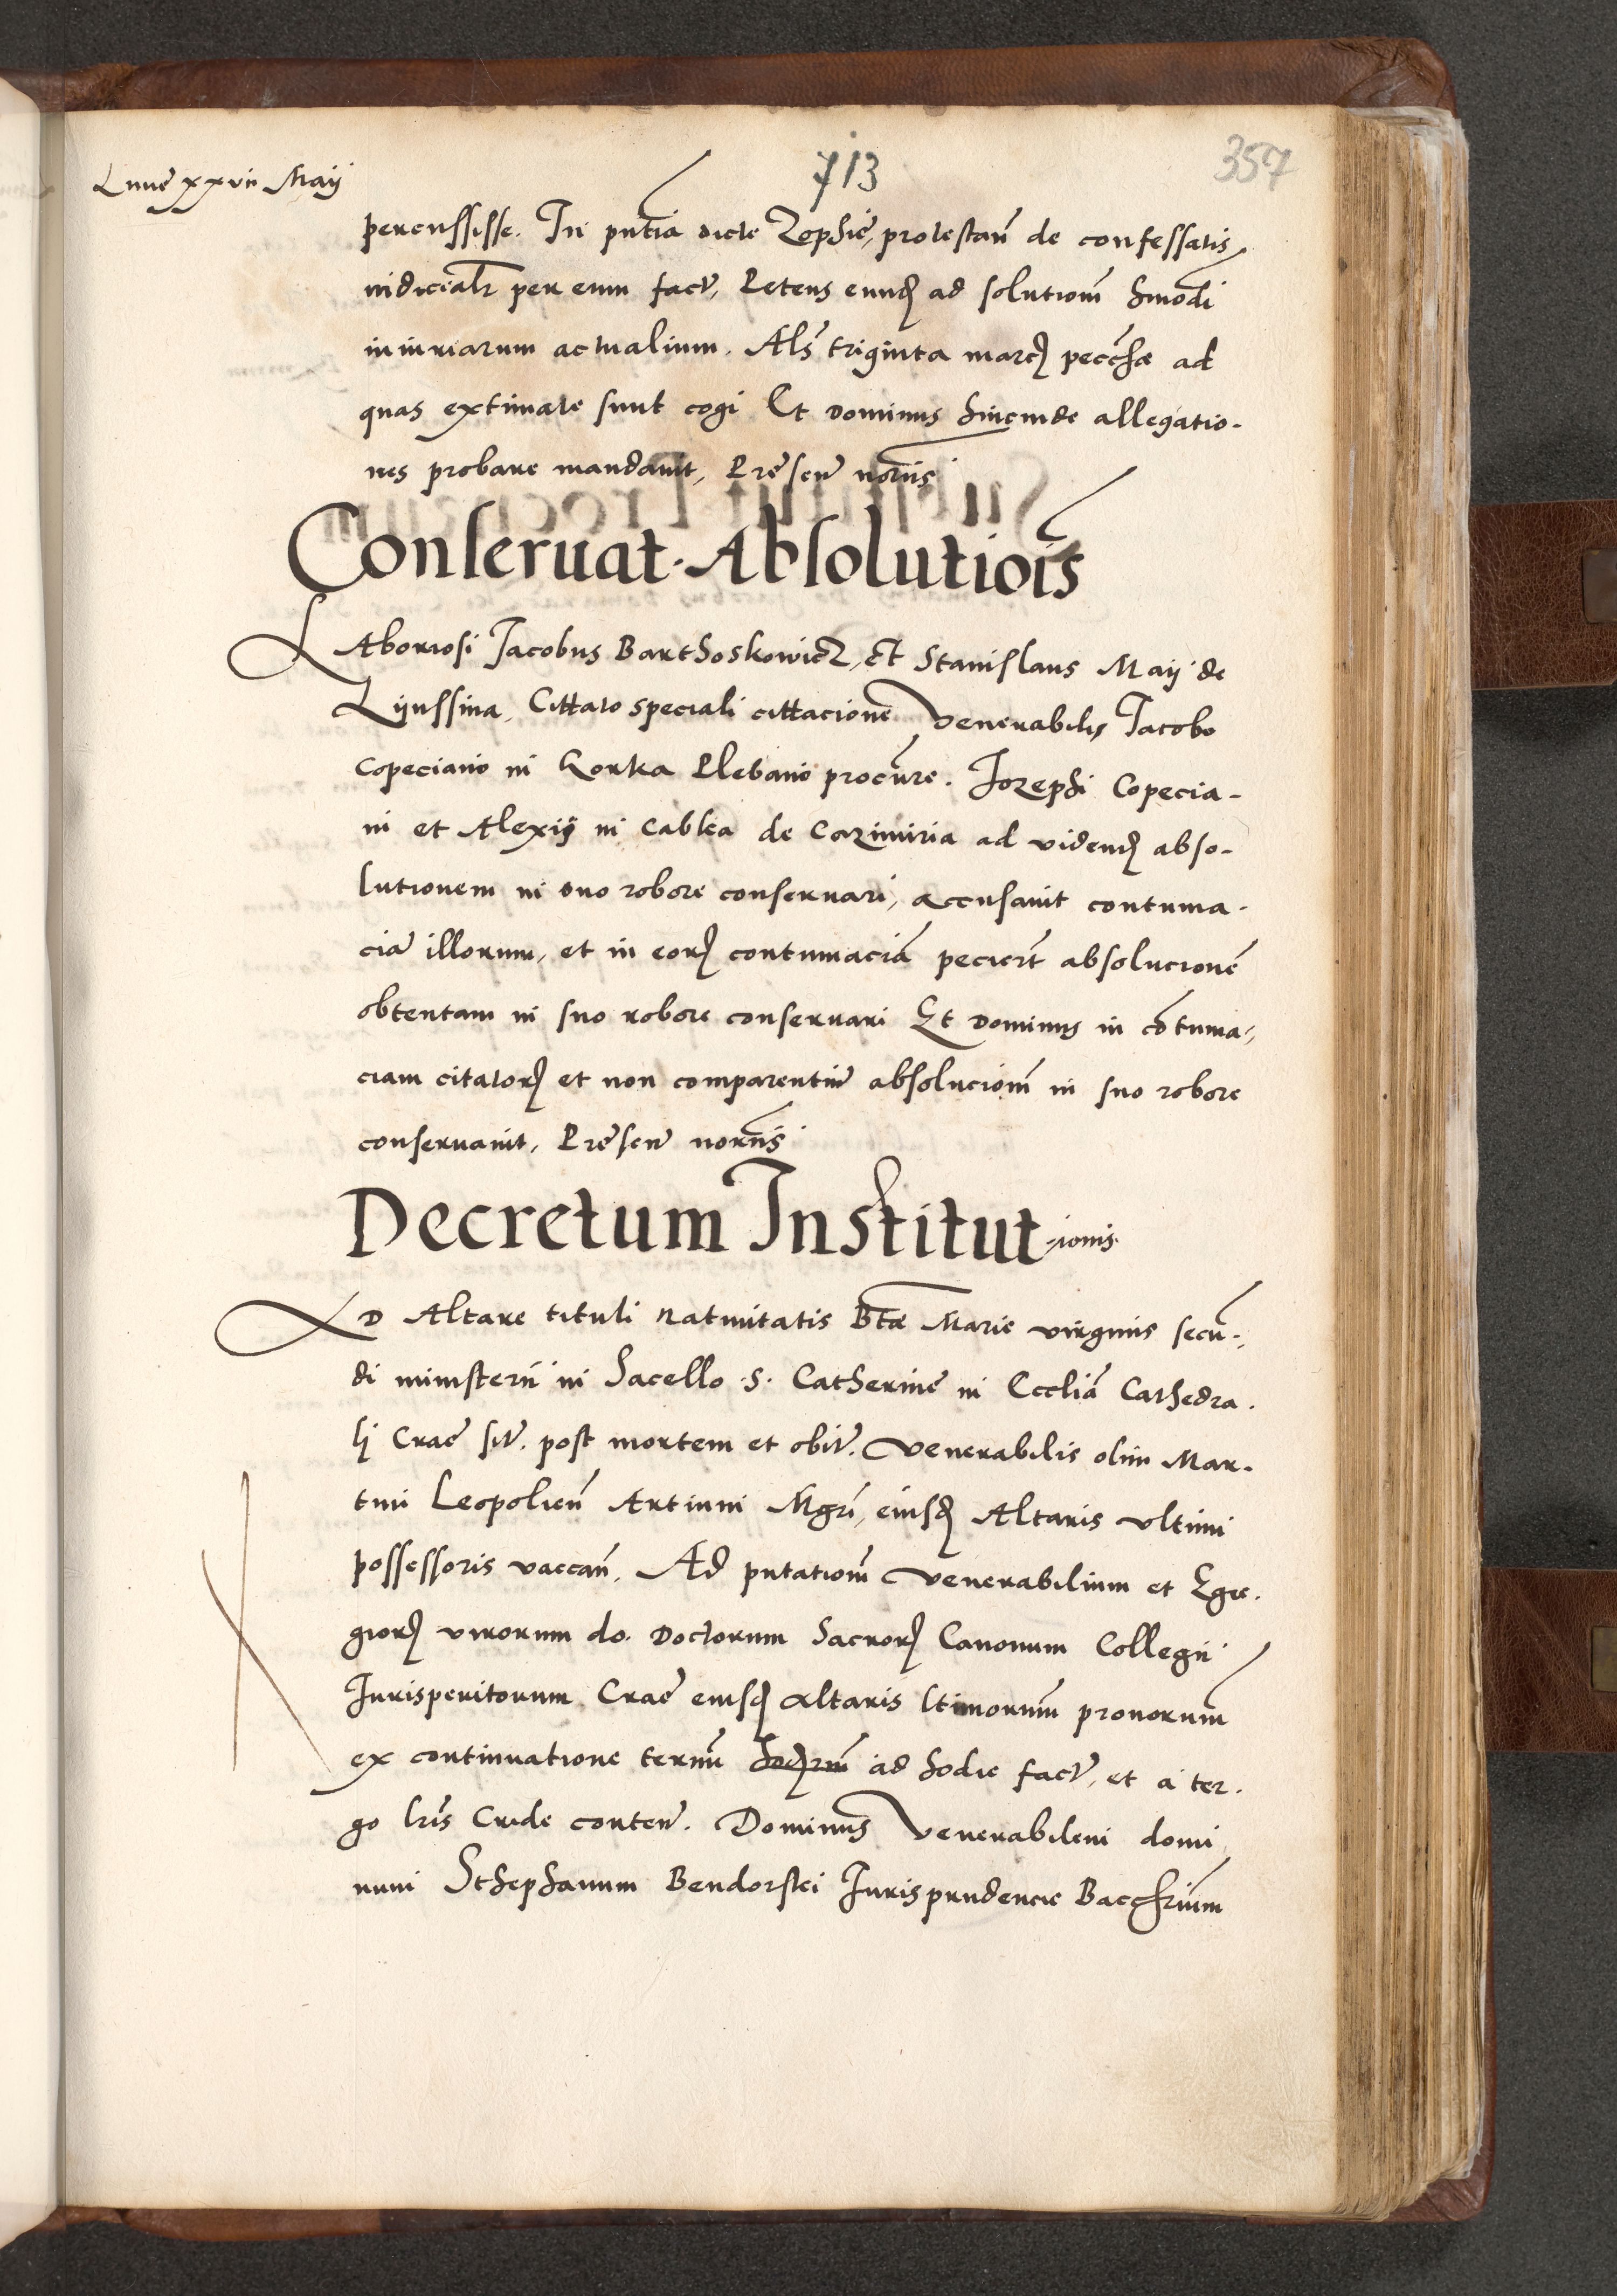 713
357
Lune xxvii Maij
percussisse. In pntia dicte Zophie, protestan̄ de confessatis
iudicialr̄ per eum fact, Petens eundꝫ ad solutiom̄ hmōdi
iniuriarum actualium. Als̄ triginta marcꝫ pecc̄hæ ad
quas extimate sunt cogi Et Dominus hincinde allegatio-
nes probare mandauit, Præsen notr̄iis
Conseruat. Absolutiois
Laboriosi Jacobus Barthoskowicz, et Stanislaus Maij de
Lijnssina, Cittato speciali cittacione Venerabilis Jacobo
Copeciano in Gorka Plebano procūre. Jozephi Copecia-
ni et Alexij in Cablea de Cazimiria ad videndꝫ abso-
lutionem in suo robore conseruari, accusauit contuma-
cia illorum, et in eorꝫ contumaciā pecierūt absolucionē
obtentam in suo robore conseruari Et Dominus in cōtuma,,
ciam citatorꝫ et non comparentiu absoluciom̄ in suo robore
conseruauit, Præsen notr̄iis
Decretum Institut-ionis
AD Altare tituli Natiuitatis Btæ Marie virginis secū-,
di ministerii in Sacello .S. Catherine in Eccliā Cathedra-
lj Crac sit. post mortem et obit. Venerabilis olim Mar-
tini Leopolien̄ Artium Mgrī, eiusdꝫ Altaris vltimi
possessoris vaccan̄, Ad pntatiom̄ Venerabilium et Egre-
giorꝫ virorum do. Doctorum Sacrorꝫ Canonum Collegii
Jurisperitorum Crac eiusdꝫ altaris ltimorum̄ pronorum̄
ex continuatione termī ad hodie fact, et a ter-
go lrīs Cride conten. Dominus Venerabilem domi
num Sthephanum Bendorski Jurisprudencie Bacchr̄ium